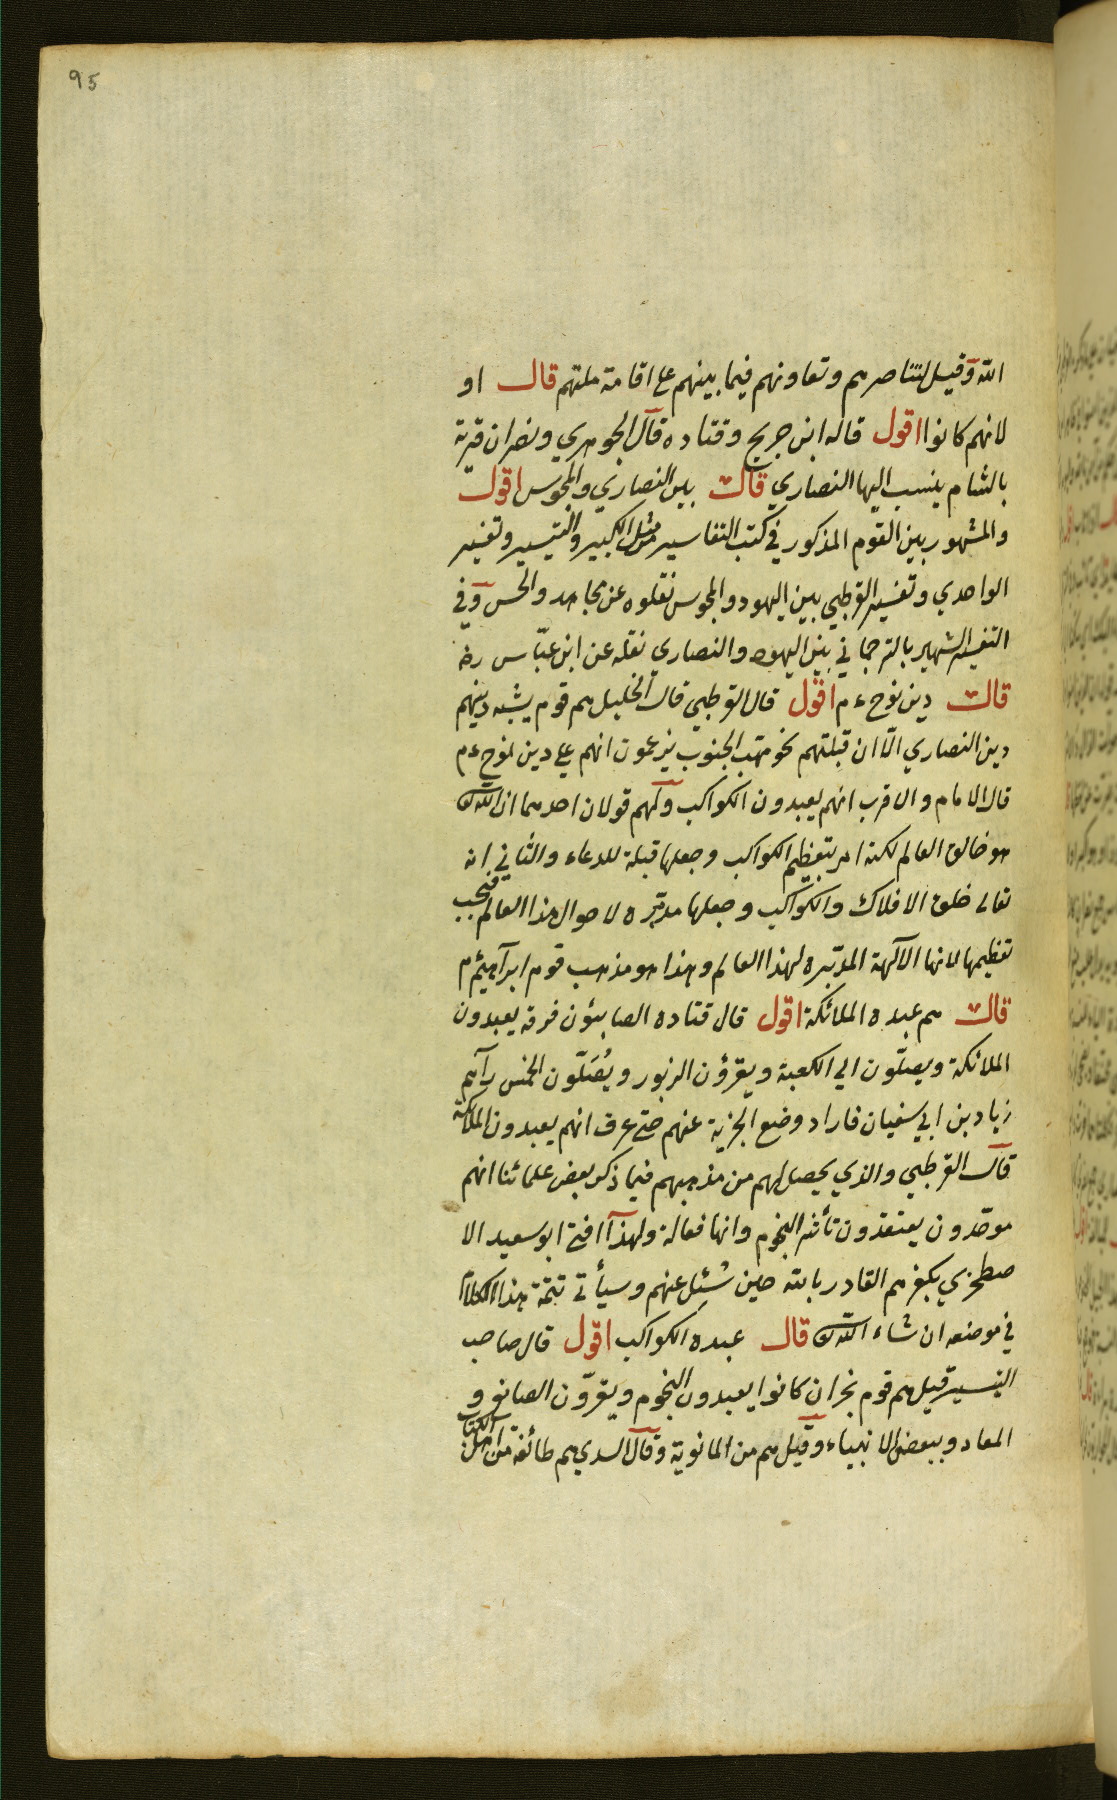 95
الله وقيل لتناصرهم وتعاونهم فيما بينهم على اقامة ملتهم قال او
لانهم كانوا اقول قاله ابن جريج وقتاده قال الجوهري ونصران قرية
بالشام ينسب اليها النصاري قال بين النصاري والمجوس اقول
والمشهور بين القوم المذكور في كتب التفاسير مثل الكبير والتيسير وتفسير
الواحدي وتفسير القرطبي بين اليهود والمجوس نقلوه عن مجاهد والحسن وفي
التفسير الشهير بالترجماني بين اليهود والنصاري نقله عن ابن عبّاس رضه
قال دين نوح ءم اقول قال القرطبي قال الخليل هم قوم يشبه دينهم
دين النصاري الّا ان قبلتهم نحو مهب الجنوب يزعمون انهم علي دين نوح ءم
قال الامام والاقرب انهم يعبدون الكواكب ولهم قولان احدهما ان الله تع
هو خالق العالم لكنه امر بتعظيم الكواكب وجعلها قبلة للدعاء والثاني انه
تعالى خلق الافلاك والكواكب وجعلها مدبّره لاحوال هذا العالم فيجب
تعظيمها لانها الآلهة المدبّره لهذا العالم وهذا هو مذهب قوم ابرآهيم ءم
قال هم عبده الملائكة اقول قال قتاده الصابئون فرقه يعبدون
الملائكة ويصلّون الي الكعبة ويقرؤن الزبور ويُصَلّون الخمس رآهم
زياد بن ابي سفيان فاراد وضع الجزية عنهم حتى عرف انهم يعبدون الملائكة
قال القرطبي والذي يحصل لهم من مذهبهم فيما ذكر بعض علمائنا انهم
موحّدون يعتقدون تأثير النجوم وانها فعالة ولهذا افتى ابو سعيد الا
صطخري بكفرهم القادر بالله حين سُئِل عنهم وسيأتي تتمة هذا الكلام
في موضعه ان شاء الله تع قال عبده الكواكب اقول قال صاحب
التيسير قيل هم قوم نجران كانوا يعبدون النجوم ويقرّون الصانع و
المعاد وببعض الانبياء وقيل هم من المانوية وقال السدي هم طائفة من اهل الكتاب